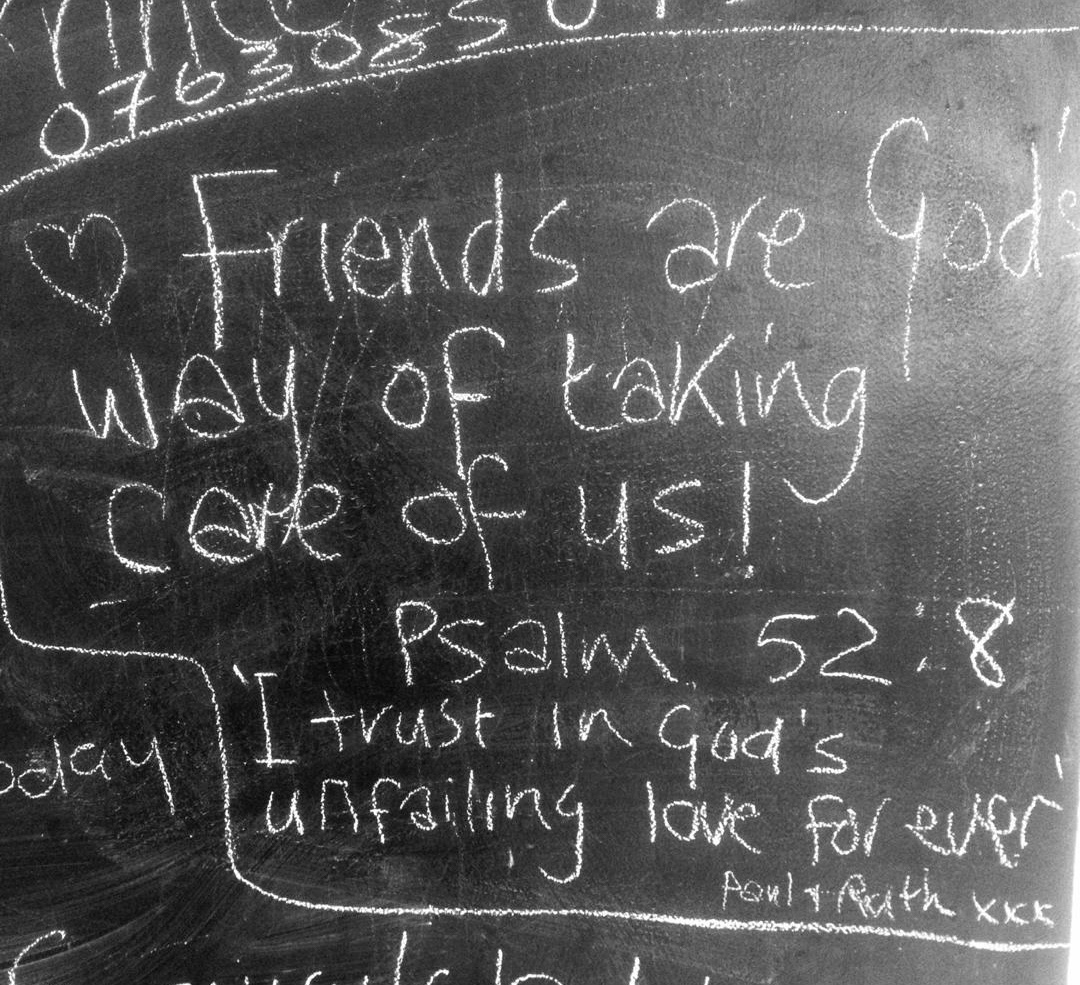 0763085
♡ Friends are God's
way of taking
care of us!
Psalm 52:8
'I trust in God's
unfailing love for ever'
oday
Paul + Ruth xxx